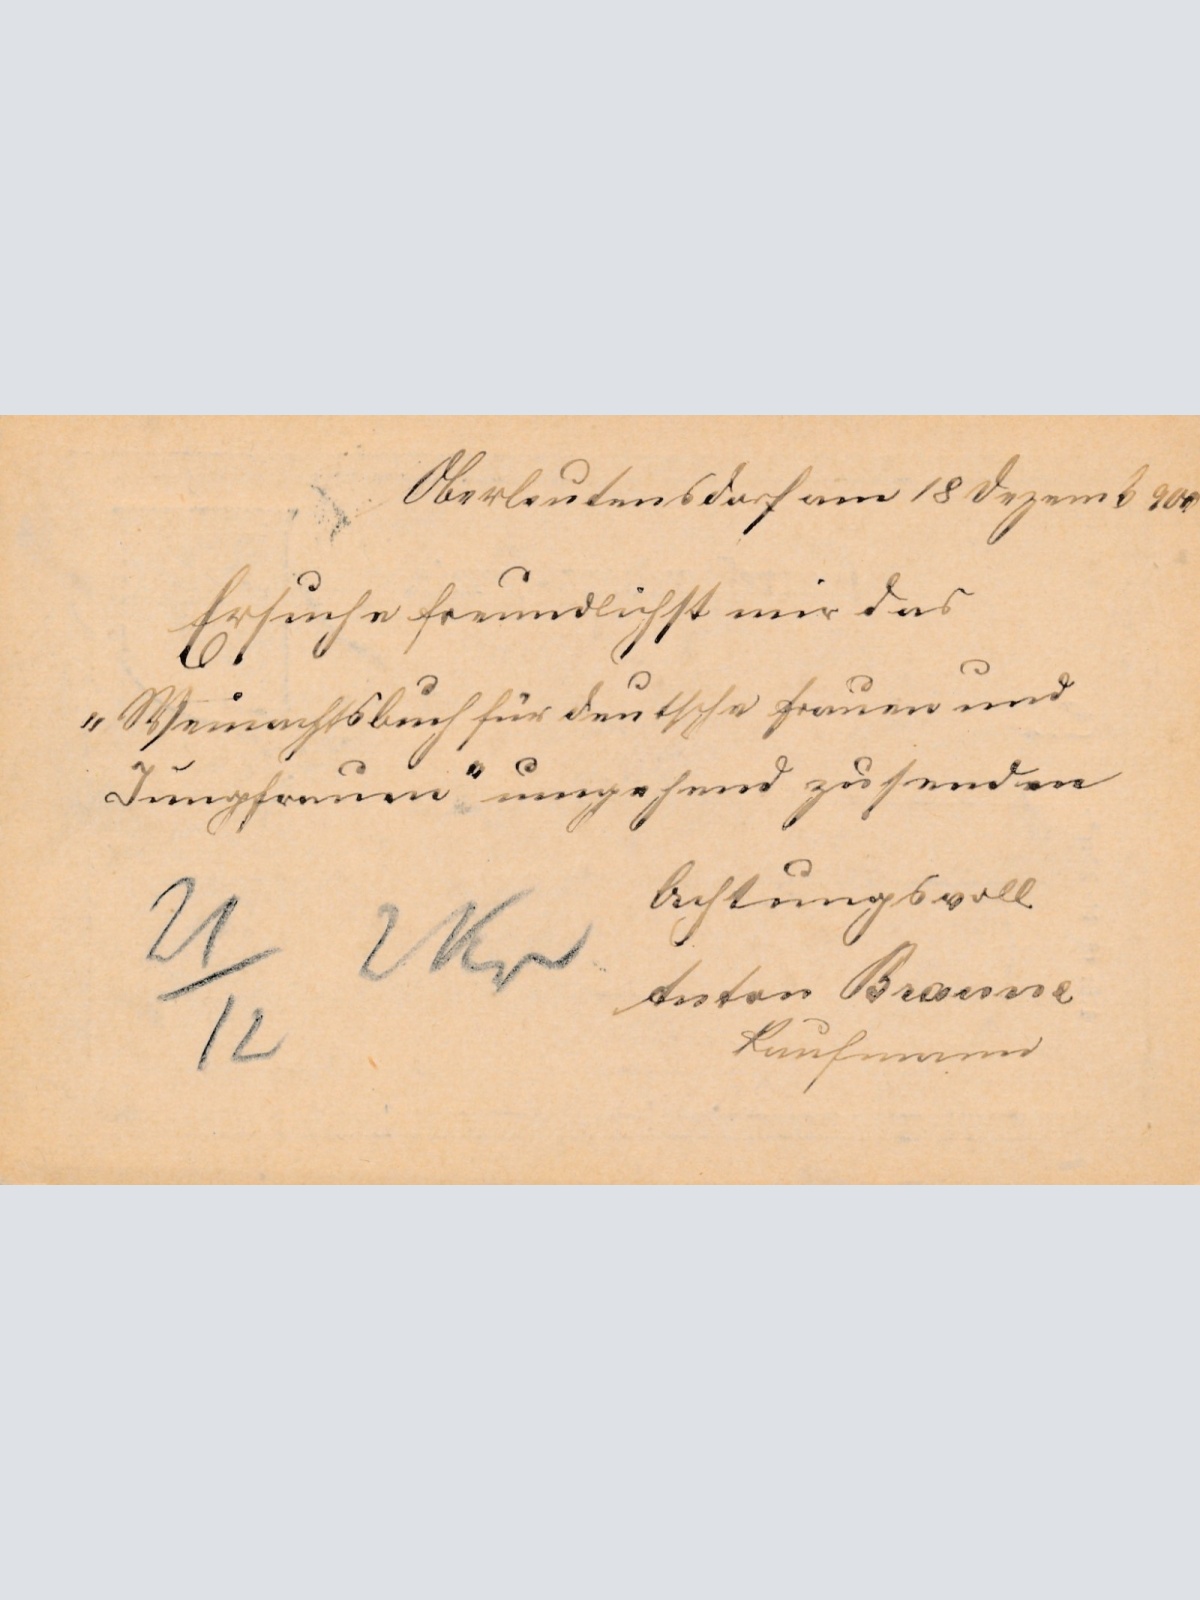 Oberleutensdorf am 18 Dezemb 900
Ersuche freundlichst mir das
„Weinachtsbuch für deutsche Frauen und
Jungfrauen" umgehend zusenden
Achtungsvoll
Anton Braune
Kaufmann
21/12
2 Kr